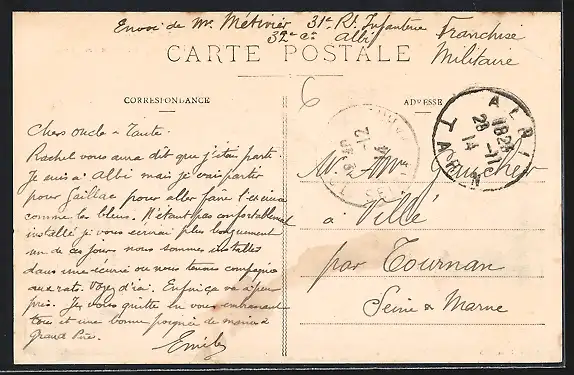 Envoi de Mr. Métivier 31e Rt. Infanterie
32e Cie Albi
Franchise
Militaire
CARTE POSTALE
CORRESPONDANCE
ADRESSE
6
ALBI
1825
28-11
14
TARN
Chers oncle & Tante.
Rachel vous aura dit que j'étais parti
Je suis à Albi mais je vais partir
pour Gaillac pour aller faire l'exercice
comme les bleus. N'étant pas confortablement
installé je vous écrirai plus longuement
un de ces jours nous sommes installés
dans une écurie ou nous tenons compagnie
aux rats. Voyez d'ici. Enfin ça va à peu
près. Je vous quitte en vous embrassant
tous et une bonne poignée de mains à
Grand Père.
Emile
Mr. & Mme Gaucher
à Villé
par Tournan
Seine & Marne